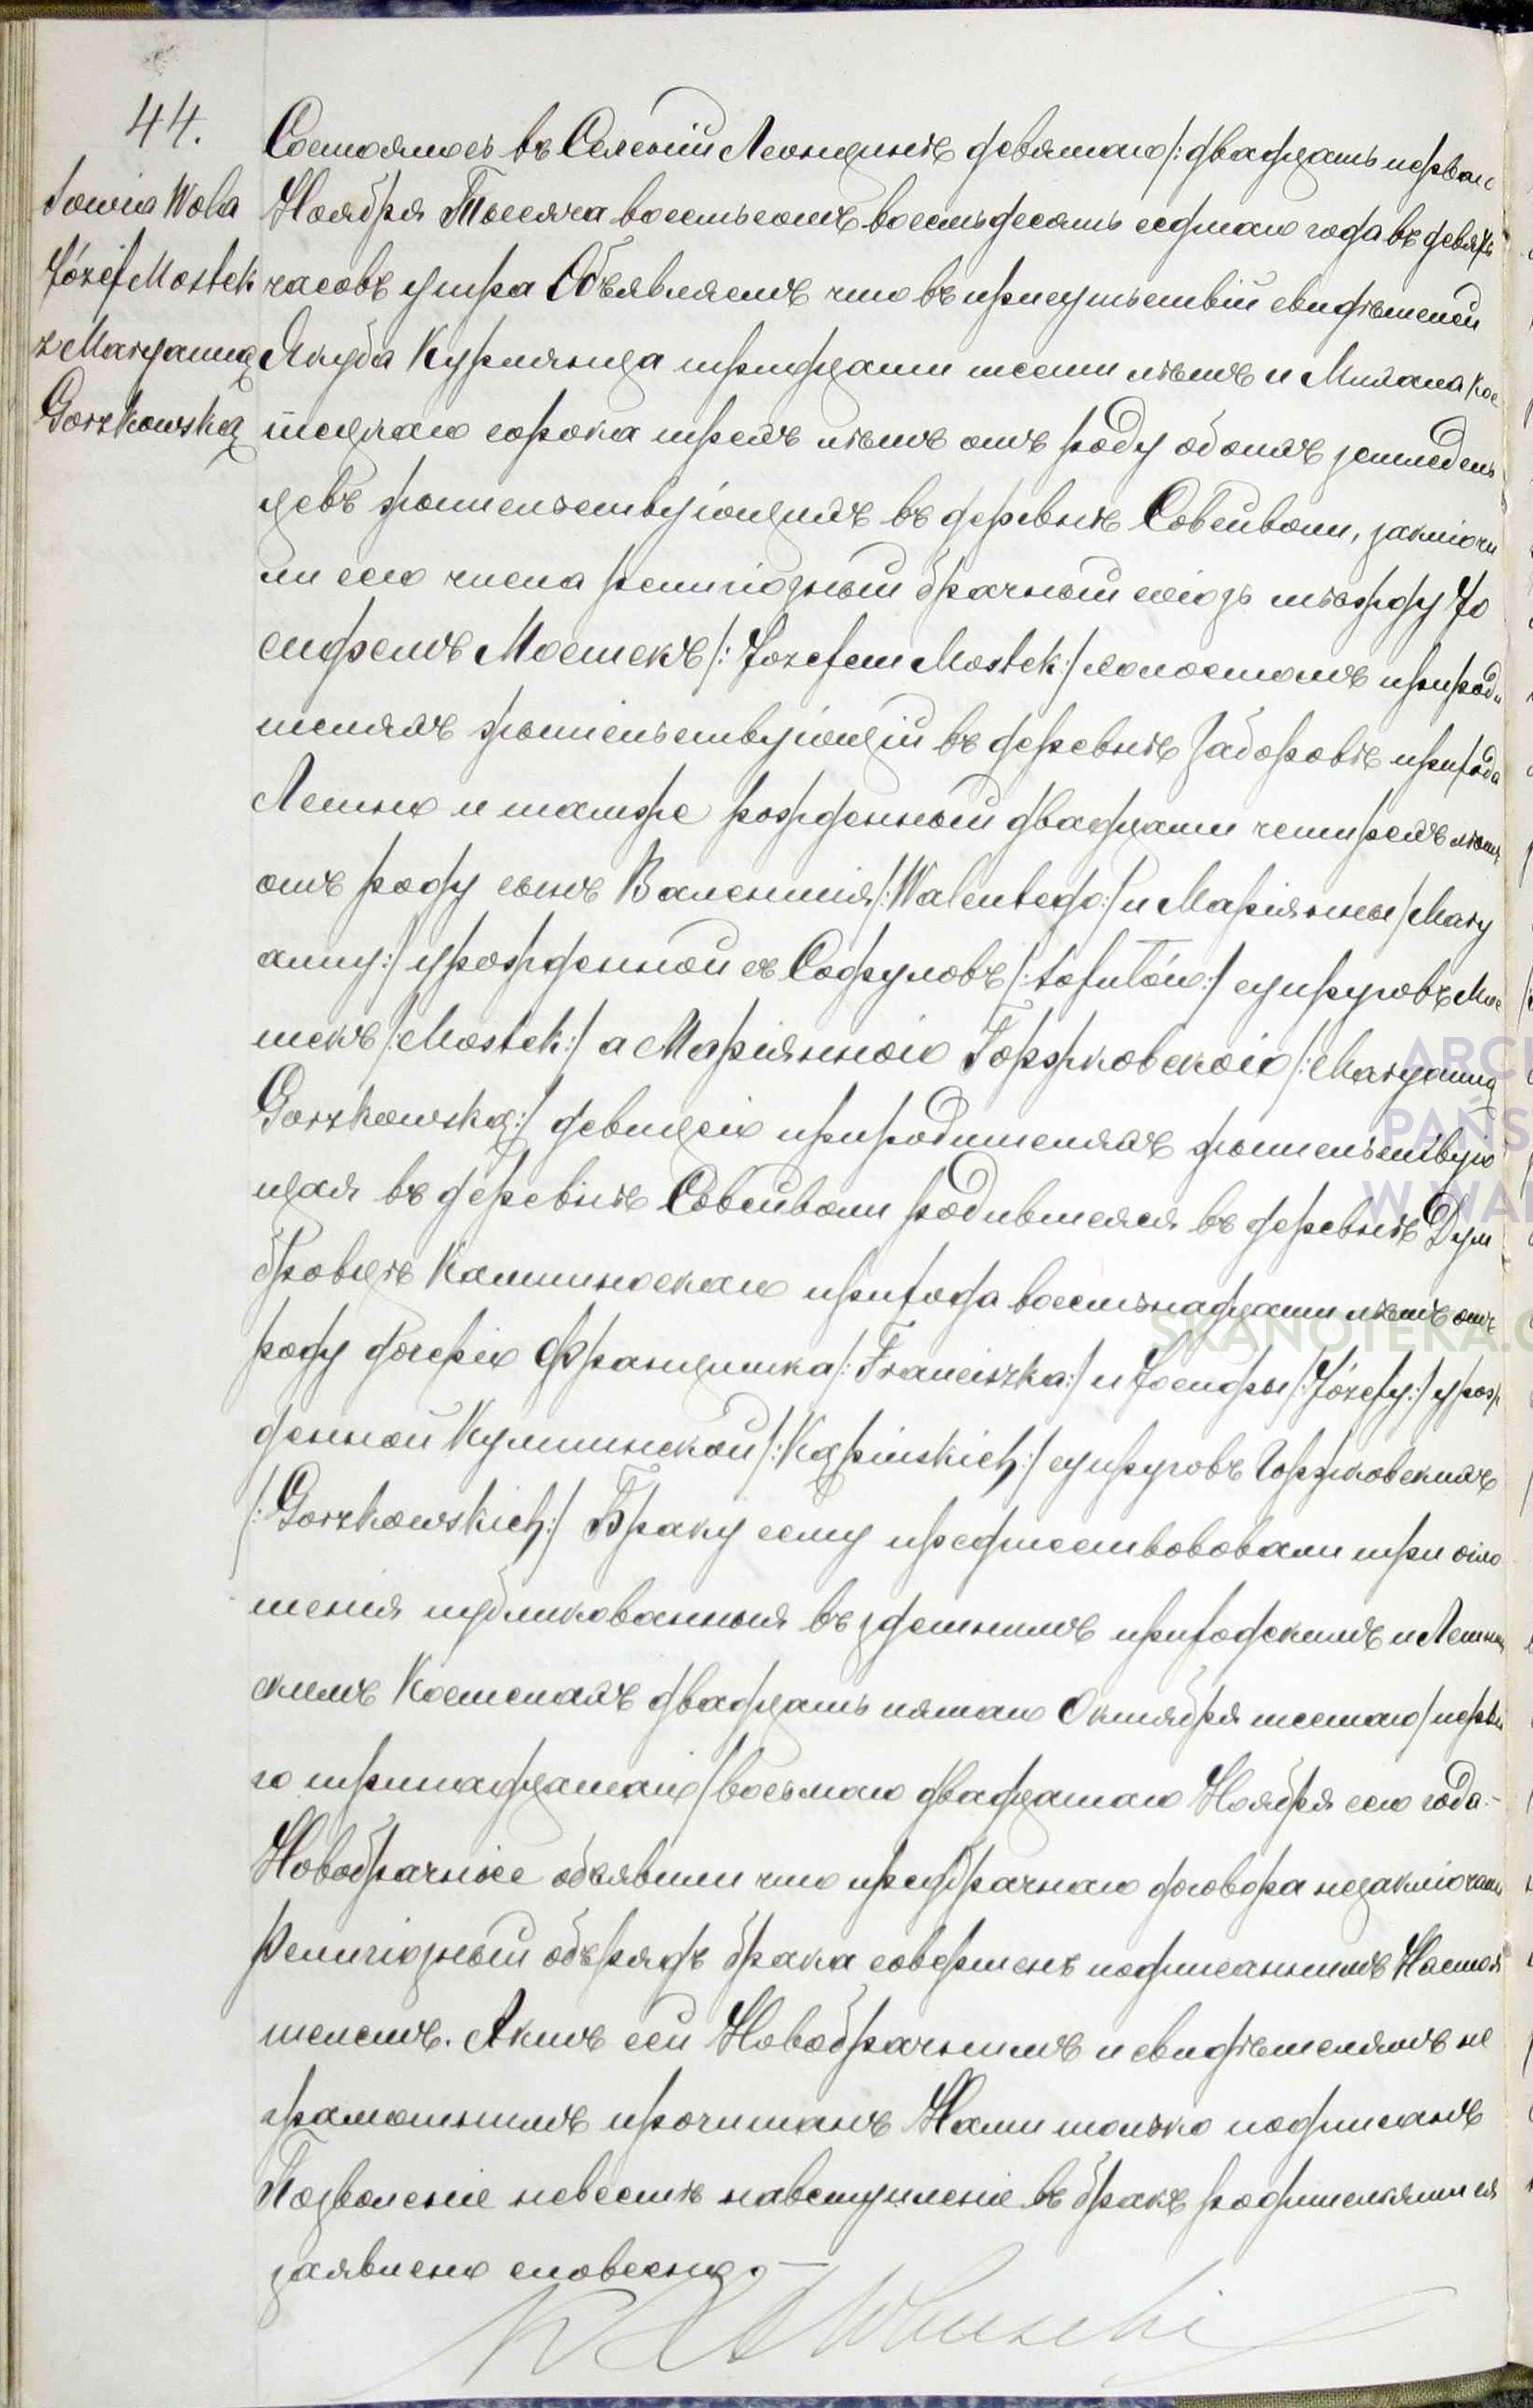 44.
Sowia Wola
Józef Mostek
z Maryanną
Gorzkowską
Состоялось въ Селеніи Леонцинѣ девятаго /:двадцать перваго
Ноября Тысяча восемьсотъ восемьдесятъ седмаго года въ девять
часовъ утра Объявляемъ что въ присутьствіи свидѣтелей
Якуба Курмянца тридцати шести лѣтъ и
сорока трехъ лѣтъ отъ роду обоихъ земледель
цевъ жительствующихъ въ деревнѣ Совейволи, заключи
ли сего числа религіозный брачный союзъ между Іо
сифомъ Мостекъ /:Jozefem Mostek:/ холостомъ при роди
теляхъ жительствующій въ деревнѣ Заборовѣ прихода
Лешно и тамже рожденный двадцати четирехъ лѣтъ
отъ роду сынъ Валентія /:Walentego:/ и Маріянны /Mary
anny:/ урожденной съ Софуловъ /:Sofulów:/ супруговъ Мос
текъ /:Mostek:/ а Маріянною Горжковскою /:Maryanną
Gorzkowską:/ девицею при родителяхъ жительствую
щая въ деревнѣ Совейволи родившеяся въ деревнѣ Дум
бровцѣ Кампиноскаго прихода восемнадцати лѣтъ отъ
роду дочерію Францишка /:Franciszka:/ и Іосифы /:Józefy:/ урож
денной /:Kąpinskich:/ супруговъ Горжковскихъ
/:Gorzkowskich:/ Браку сему предшествововали три огло
шенія публикованныя въ здешнимъ приходскимъ и Лешнов
скимъ Костелахъ двадцать пятаго Октября шестаго /перва
го тринадцатаго /восьмаго двадцатаго Ноября сего года.-
Новобрачніе объявили что предбрачнаго договора незаключали
Религіозный обърядъ брака совершенъ подписаннимъ Настоя
телемъ. Актъ сей Новобрачнимъ и свидѣтелямъ не
грамотнимъ прочитанъ Нами только подписанъ
Позволеніе невестѣ навступленіе въ бракъ родителями ея
заявлено словесно.-
ARCH
PAŃS
W WAR
SKANOTEKA.G